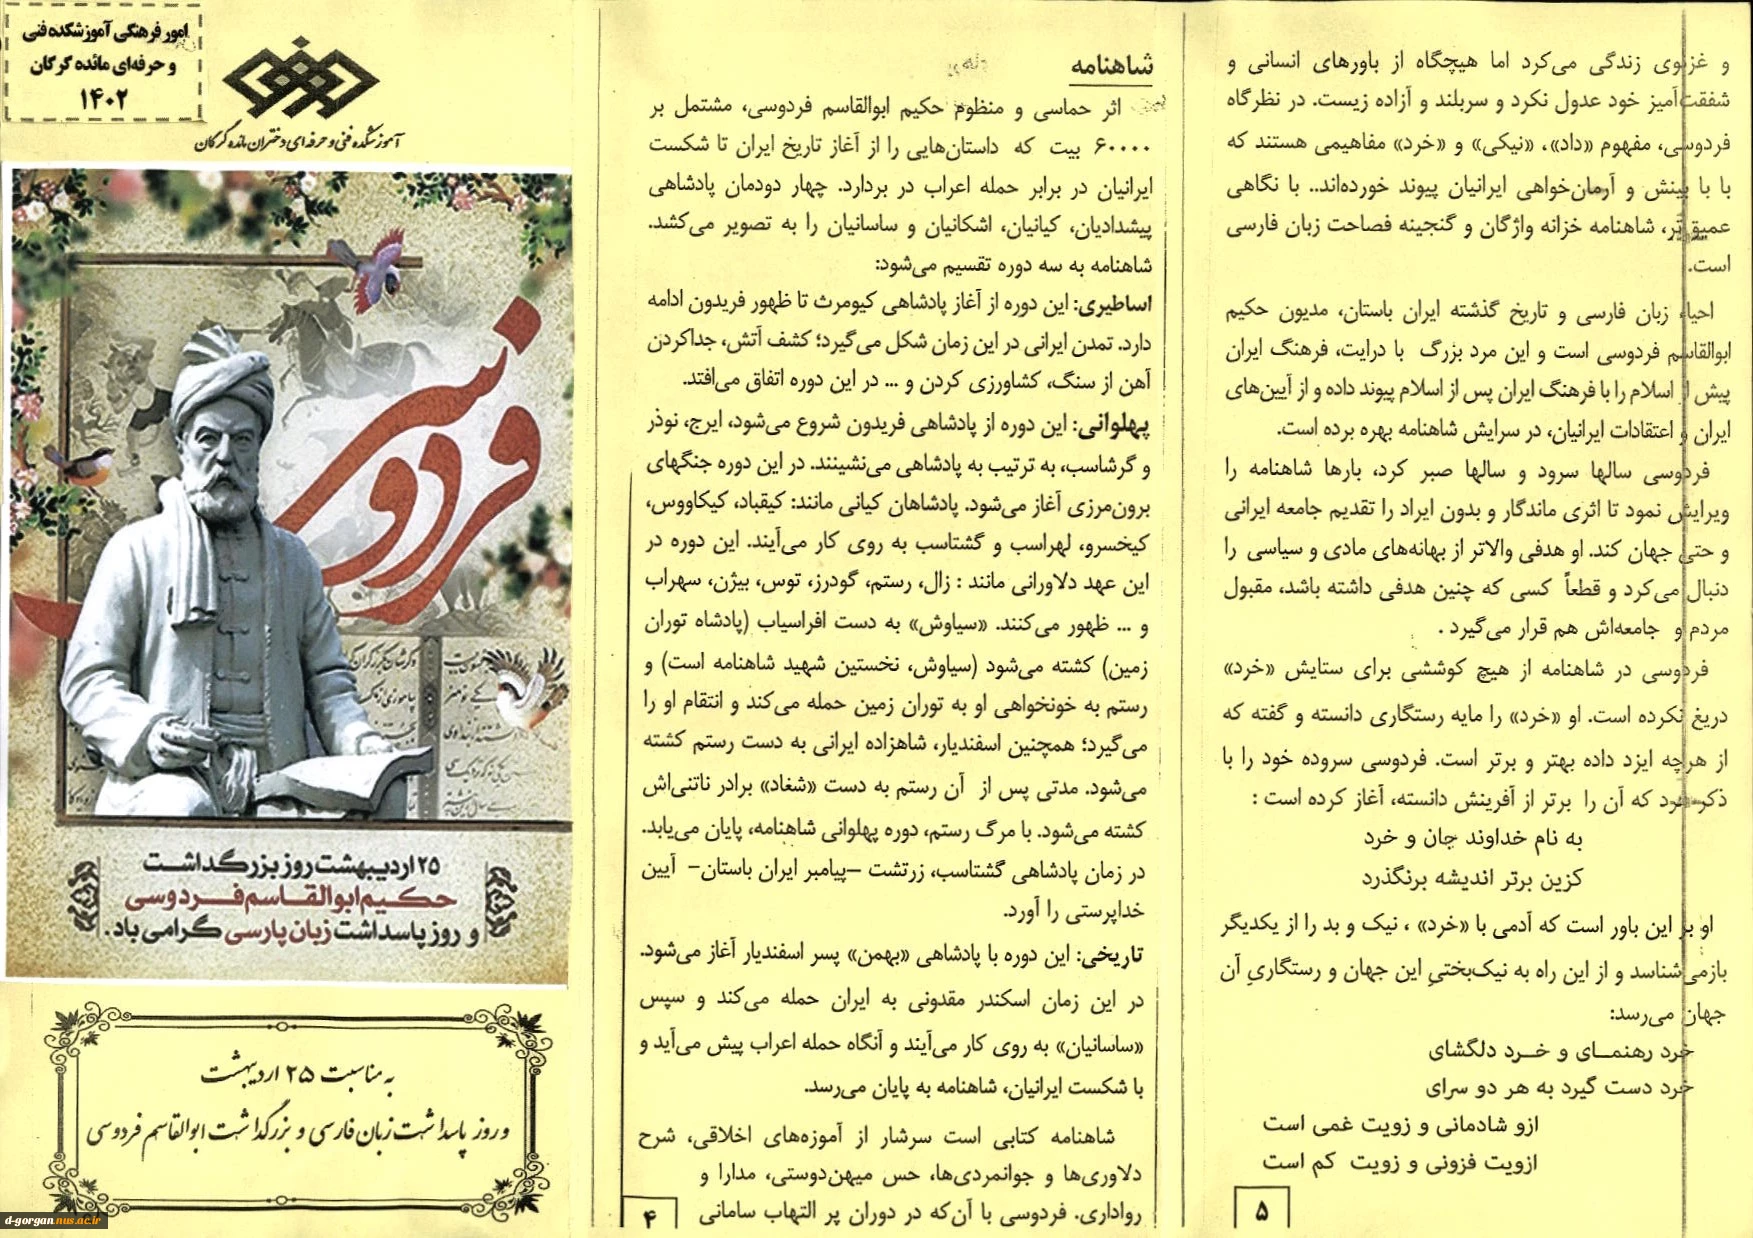 امور فرهنگی آموزشکده فنی
و حرفه‌ای مائده گرگان
۱۴۰۲
آموزشکده فنی و حرفه‌ای دختران مائده گرگان
فردوسی
۲۵ اردیبهشت روز بزرگداشت
حکیم ابوالقاسم فردوسی
و روز پاسداشت زبان پارسی گرامی باد.
به مناسبت ۲۵ اردیبهشت
و روز پاسداشت زبان فارسی و بزرگداشت ابوالقاسم فردوسی
d-gorgan.nus.ac.ir
شاهنامه
اثر حماسی و منظوم حکیم ابوالقاسم فردوسی، مشتمل بر
۶۰۰۰۰ بیت که داستان‌هایی را از آغاز تاریخ ایران تا شکست
ایرانیان در برابر حمله اعراب در بردارد. چهار دودمان پادشاهی
پیشدادیان، کیانیان، اشکانیان و ساسانیان را به تصویر می‌کشد.
شاهنامه به سه دوره تقسیم می‌شود:
اساطیری: این دوره از آغاز پادشاهی کیومرث تا ظهور فریدون ادامه
دارد. تمدن ایرانی در این زمان شکل می‌گیرد؛ کشف آتش، جداکردن
آهن از سنگ، کشاورزی کردن و ... در این دوره اتفاق می‌افتد.
پهلوانی: این دوره از پادشاهی فریدون شروع می‌شود، ایرج، نوذر
و گرشاسب، به ترتیب به پادشاهی می‌نشینند. در این دوره جنگهای
برون‌مرزی آغاز می‌شود. پادشاهان کیانی مانند: کیقباد، کیکاووس،
کیخسرو، لهراسب و گشتاسب به روی کار می‌آیند. این دوره در
این عهد دلاورانی مانند : زال، رستم، گودرز، توس، بیژن، سهراب
و ... ظهور می‌کنند. «سیاوش» به دست افراسیاب (پادشاه توران
زمین) کشته می‌شود (سیاوش، نخستین شهید شاهنامه است) و
رستم به خونخواهی او به توران زمین حمله می‌کند و انتقام او را
می‌گیرد؛ همچنین اسفندیار، شاهزاده ایرانی به دست رستم کشته
می‌شود. مدتی پس از آن رستم به دست «شغاد» برادر ناتنی‌اش
کشته می‌شود. با مرگ رستم، دوره پهلوانی شاهنامه، پایان می‌یابد.
در زمان پادشاهی گشتاسب، زرتشت –پیامبر ایران باستان– آیین
خداپرستی را آورد.
تاریخی: این دوره با پادشاهی «بهمن» پسر اسفندیار آغاز می‌شود.
در این زمان اسکندر مقدونی به ایران حمله می‌کند و سپس
«ساسانیان» به روی کار می‌آیند و آنگاه حمله اعراب پیش می‌آید و
با شکست ایرانیان، شاهنامه به پایان می‌رسد.
شاهنامه کتابی است سرشار از آموزه‌های اخلاقی، شرح
دلاوری‌ها و جوانمردی‌ها، حس میهن‌دوستی، مدارا و
رواداری. فردوسی با آن‌که در دوران پر التهاب سامانی
۴
و غزنوی زندگی می‌کرد اما هیچگاه از باورهای انسانی و
شفقت‌آمیز خود عدول نکرد و سربلند و آزاده زیست. در نظرگاه
فردوسی، مفهوم «داد»، «نیکی» و «خرد» مفاهیمی هستند که
با با بینش و آرمان‌خواهی ایرانیان پیوند خورده‌اند.. با نگاهی
عمیق‌تر، شاهنامه خزانه واژگان و گنجینه فصاحت زبان فارسی
است.
احیاء زبان فارسی و تاریخ گذشته ایران باستان، مدیون حکیم
ابوالقاسم فردوسی است و این مرد بزرگ با درایت، فرهنگ ایران
پیش از اسلام را با فرهنگ ایران پس از اسلام پیوند داده و از آیین‌های
ایران و اعتقادات ایرانیان، در سرایش شاهنامه بهره برده است.
فردوسی سالها سرود و سالها صبر کرد، بارها شاهنامه را
ویرایش نمود تا اثری ماندگار و بدون ایراد را تقدیم جامعه ایرانی
و حتی جهان کند. او هدفی والاتر از بهانه‌های مادی و سیاسی را
دنبال می‌کرد و قطعاً کسی که چنین هدفی داشته باشد، مقبول
مردم و جامعه‌اش هم قرار می‌گیرد .
فردوسی در شاهنامه از هیچ کوششی برای ستایش «خرد»
دریغ نکرده است. او «خرد» را مایه رستگاری دانسته و گفته که
از هرچه ایزد داده بهتر و برتر است. فردوسی سروده خود را با
ذکر خرد که آن را برتر از آفرینش دانسته، آغاز کرده است :
به نام خداوند جان و خرد
کزین برتر اندیشه برنگذرد
او بر این باور است که آدمی با «خرد» ، نیک و بد را از یکدیگر
بازمی‌شناسد و از این راه به نیک‌بختیِ این جهان و رستگاریِ آن
جهان می‌رسد:
خرد رهنمـای و خـرد دلگشای
خرد دست گیرد به هر دو سرای
ازو شادمانی و زویت غمی است
ازویت فزونی و زویت کم است
۵